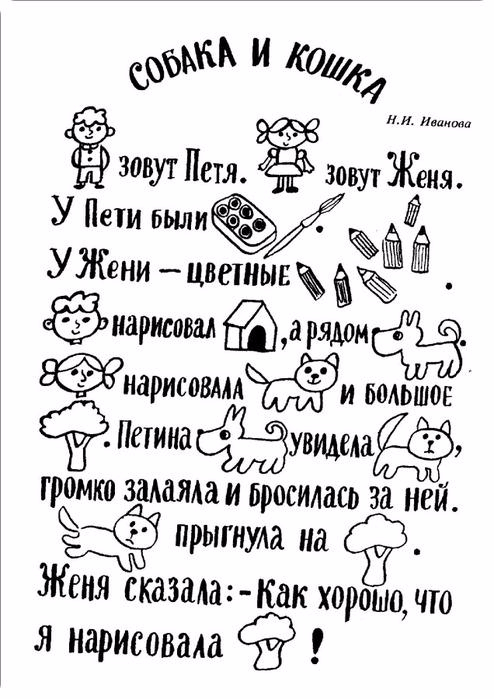 СОБАКА И КОШКА
Н.И. Иванова
зовут Петя. зовут Женя.
У Пети были .
У Жени – цветные .
нарисовал , а рядом .
нарисовала и большое
. Петина увидела ,
громко залаяла и бросилась за ней.
прыгнула на .
Женя сказала: - Как хорошо, что
я нарисовала !